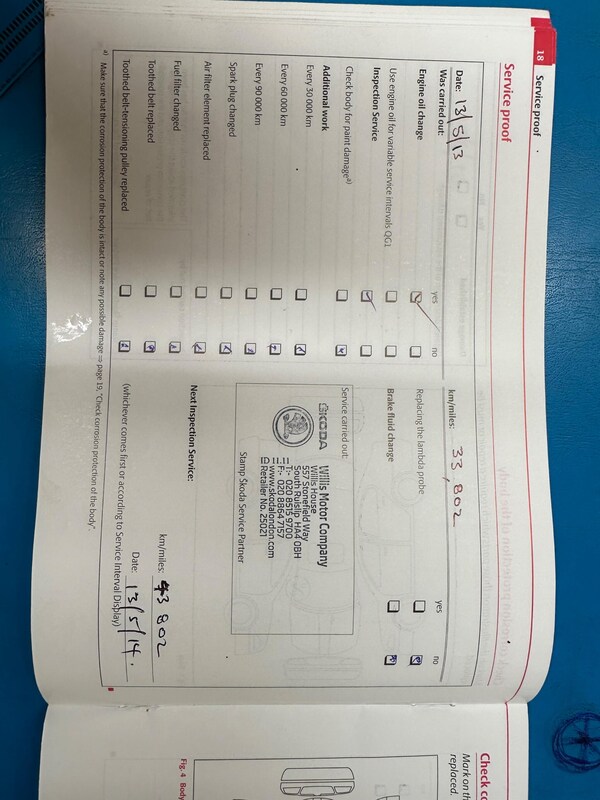 18 Service proof
Service proof
Date: 13/5/13
km/miles: 33,802
Was carried out:
yes
no
yes
no
Engine oil change
Use engine oil for variable service intervals QG1
Inspection Service
Check body for paint damage a)
Additional work
Every 30 000 km
Every 60 000 km
Every 90 000 km
Spark plug changed
Air filter element replaced
Fuel filter changed
Toothed belt replaced
Toothed belt-tensioning pulley replaced
Replacing the lambda probe
Brake fluid change
Service carried out:
ŠKODA
Willis Motor Company
Willis House
557 Stonefield Way
South Ruislip HA4 0BH
T: 020 8515 9700
F: 020 8864 7157
www.skodalondon.com
Retailer No. 25021
Stamp Škoda Service Partner
Next Inspection Service:
km/miles: 43 802
Date: 13/5/14.
(whichever comes first or according to Service Interval Display)
a) Make sure that the corrosion protection of the body is intact or note any possible damage ⇒ page 19, "Check corrosion protection of the body".
Check co
Mark on th
replaced.
Fig. 4 Body